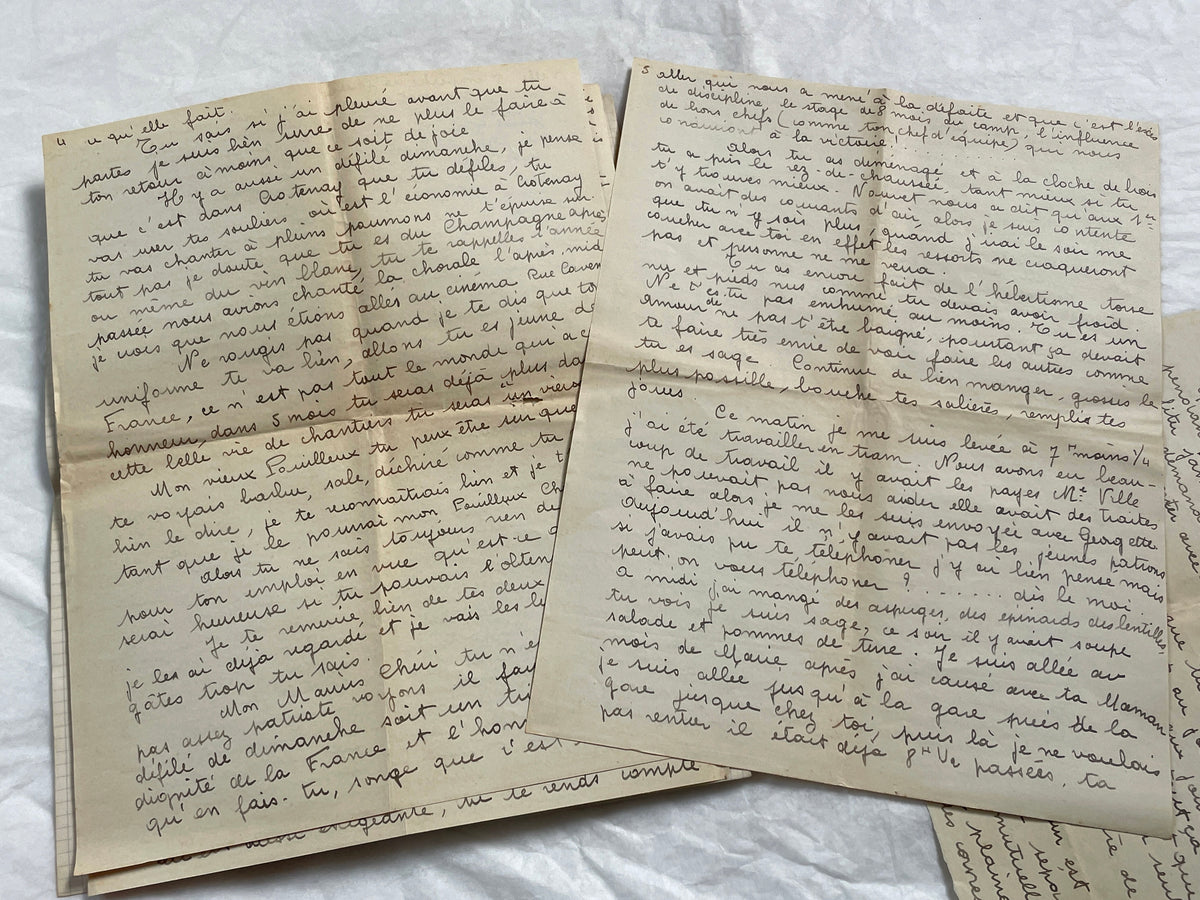 4 u qu'elle fait.
Tu sais si j'ai pleuré avant que tu
partes je suis bien sure de ne plus le faire à
ton retour à moins que ce soit de joie
Il y a aussi un défilé dimanche, je pense
que c'est dans Crotenay que tu défiles, tu
vas user tes souliers ou est l'économie à Crotenay
tu vas chanter à pleins poumons ne t'épuise sur
tout pas je doute que tu es du Champagne après
ou même du vin blanc, tu te rappelles l'année
passée nous avions chanté la chorale l'après, mid
je crois que nous étions allés au cinéma Rue Caven
Ne rougis pas quand je te dis que to
uniforme te va bien, allons tu es jeune de
France, ce n'est pas tout le monde qui a c
honneur, dans 5 mois tu seras déjà plus da
cette belle vie de chantiers tu seras un vieux
Mon vieux Pouilleux tu peux être sur que
te voyais barbu, sale, déchiré comme tu
bien le dire, je te reconnaitrais bien et je t
tant que je le pourrai mon Pouilleux Ch
Alors tu ne sais toujours rien de
pour ton emploi en vue qu'est-ce q
serai heureuse si tu pouvais l'obten
Je te remercie bien de tes deux
je les ai déjà regardé et je vais les
gâtes trop tu sais.
Mon Mamis Chéri tu n'e
pas assez patriote voyons il fau
défilé de dimanche soit un tri
dignité de la France et l'hon
qu'en fais-tu, songe que c'est
aussi exigeante, tu te rends compte
5 aller qui nous a mené à la défaite et que c'est l'excès
de discipline, le stage de 8 mois du camp, l'influence
de bons chefs (comme ton chef d'équipe) qui nous
conduiront à la victoire! ........
Alors tu as déménagé et à la cloche de bois
tu a pris le rez-de-chaussée, tant mieux si tu
t'y trouves mieux. Nouvet nous a dit qu'aux 1er
on avait des courants d'air, alors je suis contente
que tu n'y sois plus, quand j'irai le soir me
coucher avec toi en effet les ressorts ne craqueront
pas et personne ne me verra.
Tu as encore fait de l'hébertisme torse
nu et pieds nus comme tu devais avoir froid.
Ne t'es tu pas enrhumé au moins. Tu es un
Amour de ne pas t'être baigné, pourtant ça devait
te faire très envie de voir faire les autres comme
tu es sage. Continue de bien manger, grossis le
plus possible, bouche tes salières, remplis tes
joues.
Ce matin je me suis levée à 7 H moins 1/4
j'ai été travailler en tram. Nous avons eu beau-
coup de travail il y avait les payes Me Ville
ne pouvait pas nous aider elle avait des traites
à faire alors je me les suis envoyée avec Georgette.
Aujourd'hui il n'y avait pas les jeunes patrons
si j'avais pu te téléphoner j'y ai bien pensé mais
peut-on vous téléphoner ? ........ dès le moi.
A midi j'ai mangé des asperges, des épinards des lentilles
tu vois je suis sage, ce soir il y avait soupe
salade et pommes de terre. Je suis allée au
mois de Marie après j'ai causé avec ta Maman
je suis allée jusqu'à la gare puis de la
gare jusque chez toi, puis là je ne voulais
pas rentrer il était déjà 8H 1/2 passées. ta